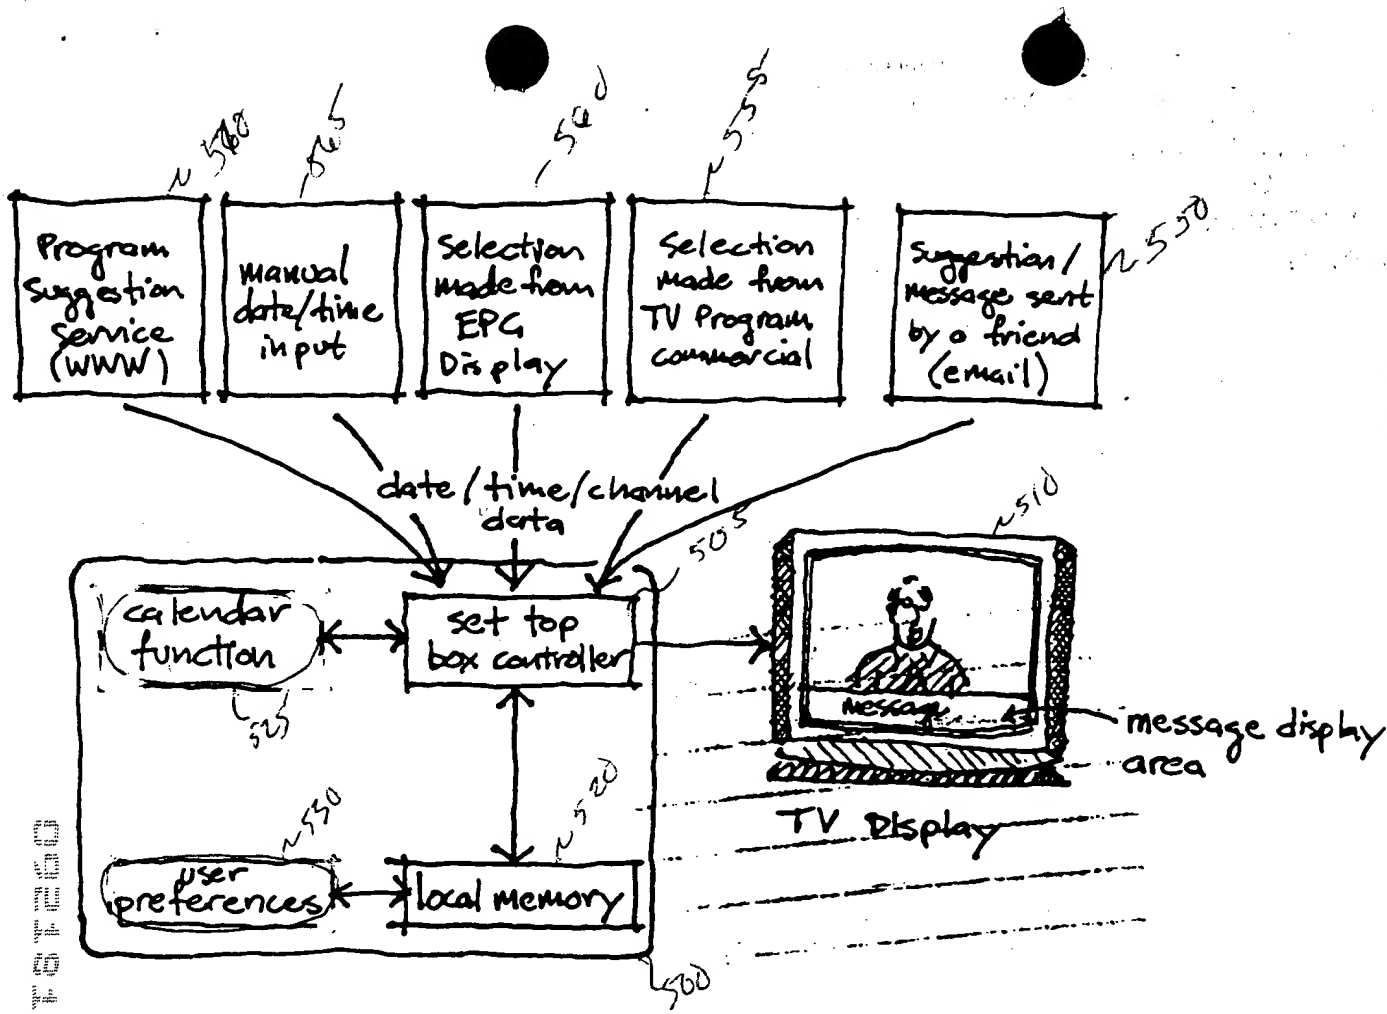 545
540
535
Program
Suggestion
Service
(WWW)
manual
date/time
input
Selection
made from
EPG
Display
Selection
made from
TV Program
commercial
Suggestion/
message sent
by a friend
(email)
date/time/channel
data
505
510
calendar
function
525
set top
box controller
message
message display
area
TV Display
530
520
user
preferences
local memory
500